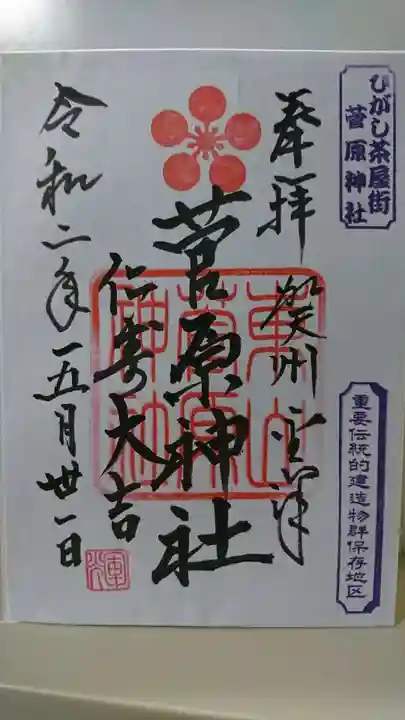 ひがし茶屋街
菅原神社
重要伝統的建造物群保存地区
奉拝
賀州金澤
菅原神社
仁寿大吉
令和二年五月丗一日